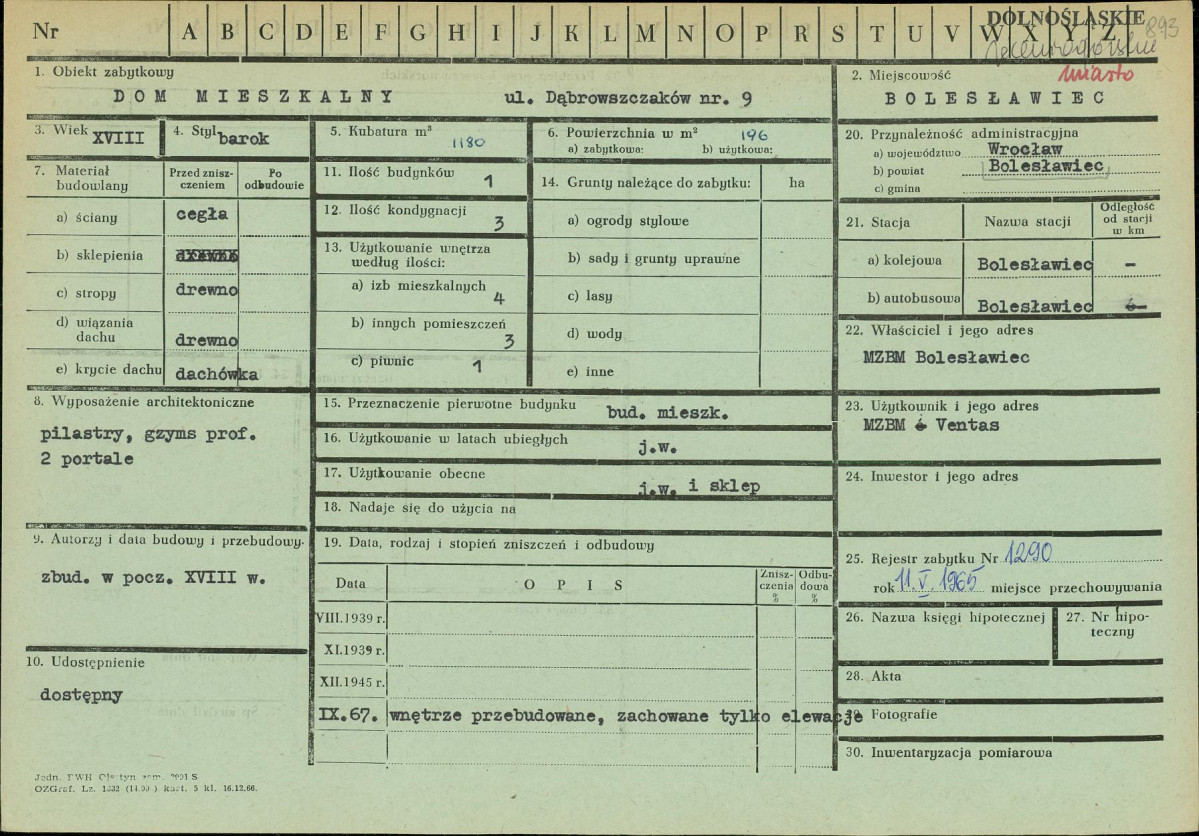 Nr A B C D E F G H I J K L M N O P R S T U V W X Y Z
DOLNOŚLĄSKIE
893
miasto
1. Obiekt zabytkowy
DOM MIESZKALNY ul. Dąbrowszczaków nr. 9
2. Miejscowość
BOLESŁAWIEC
3. Wiek XVIII
4. Styl barok
5. Kubatura m³
1180
6. Powierzchnia w m² 196
a) zabytkowa: b) użytkowa:
20. Przynależność administracyjna
a) województwo Wrocław
b) powiat Bolesławiec
c) gmina
7. Materiał budowlany
Przed zniszczeniem
Po odbudowie
a) ściany cegła
b) sklepienia
c) stropy drewno
d) wiązania dachu drewno
e) krycie dachu dachówka
11. Ilość budynków 1
12. Ilość kondygnacji 3
13. Użytkowanie wnętrza
według ilości:
a) izb mieszkalnych 4
b) innych pomieszczeń 3
c) piwnic 1
14. Grunty należące do zabytku: ha
a) ogrody stylowe
b) sady i grunty uprawne
c) lasy
d) wody
e) inne
21. Stacja Nazwa stacji
Odległość
od stacji
w km
a) kolejowa Bolesławiec -
b) autobusowa Bolesławiec
22. Właściciel i jego adres
MZBM Bolesławiec
8. Wyposażenie architektoniczne
pilastry, gzyms prof.
2 portale
15. Przeznaczenie pierwotne budynku bud. mieszk.
16. Użytkowanie w latach ubiegłych j.w.
17. Użytkowanie obecne j.w. i sklep
18. Nadaje się do użycia na
23. Użytkownik i jego adres
MZBM i Ventas
24. Inwestor i jego adres
9. Autorzy i data budowy i przebudowy
zbud. w pocz. XVIII w.
19. Data, rodzaj i stopień zniszczeń i odbudowy
Data OPIS
Zniszczenia %
Odbudowa %
VIII.1939 r.
XI.1939 r.
XII.1945 r.
IX.67. wnętrze przebudowane, zachowane tylko elewacje
25. Rejestr zabytku Nr 1290
rok 11.V.1965 miejsce przechowywania
26. Nazwa księgi hipotecznej
27. Nr hipoteczny
10. Udostępnienie
dostępny
28. Akta
29. Fotografie
30. Inwentaryzacja pomiarowa
OZGraf. Lz. 1332 kart. 5 kl. 16.12.66.